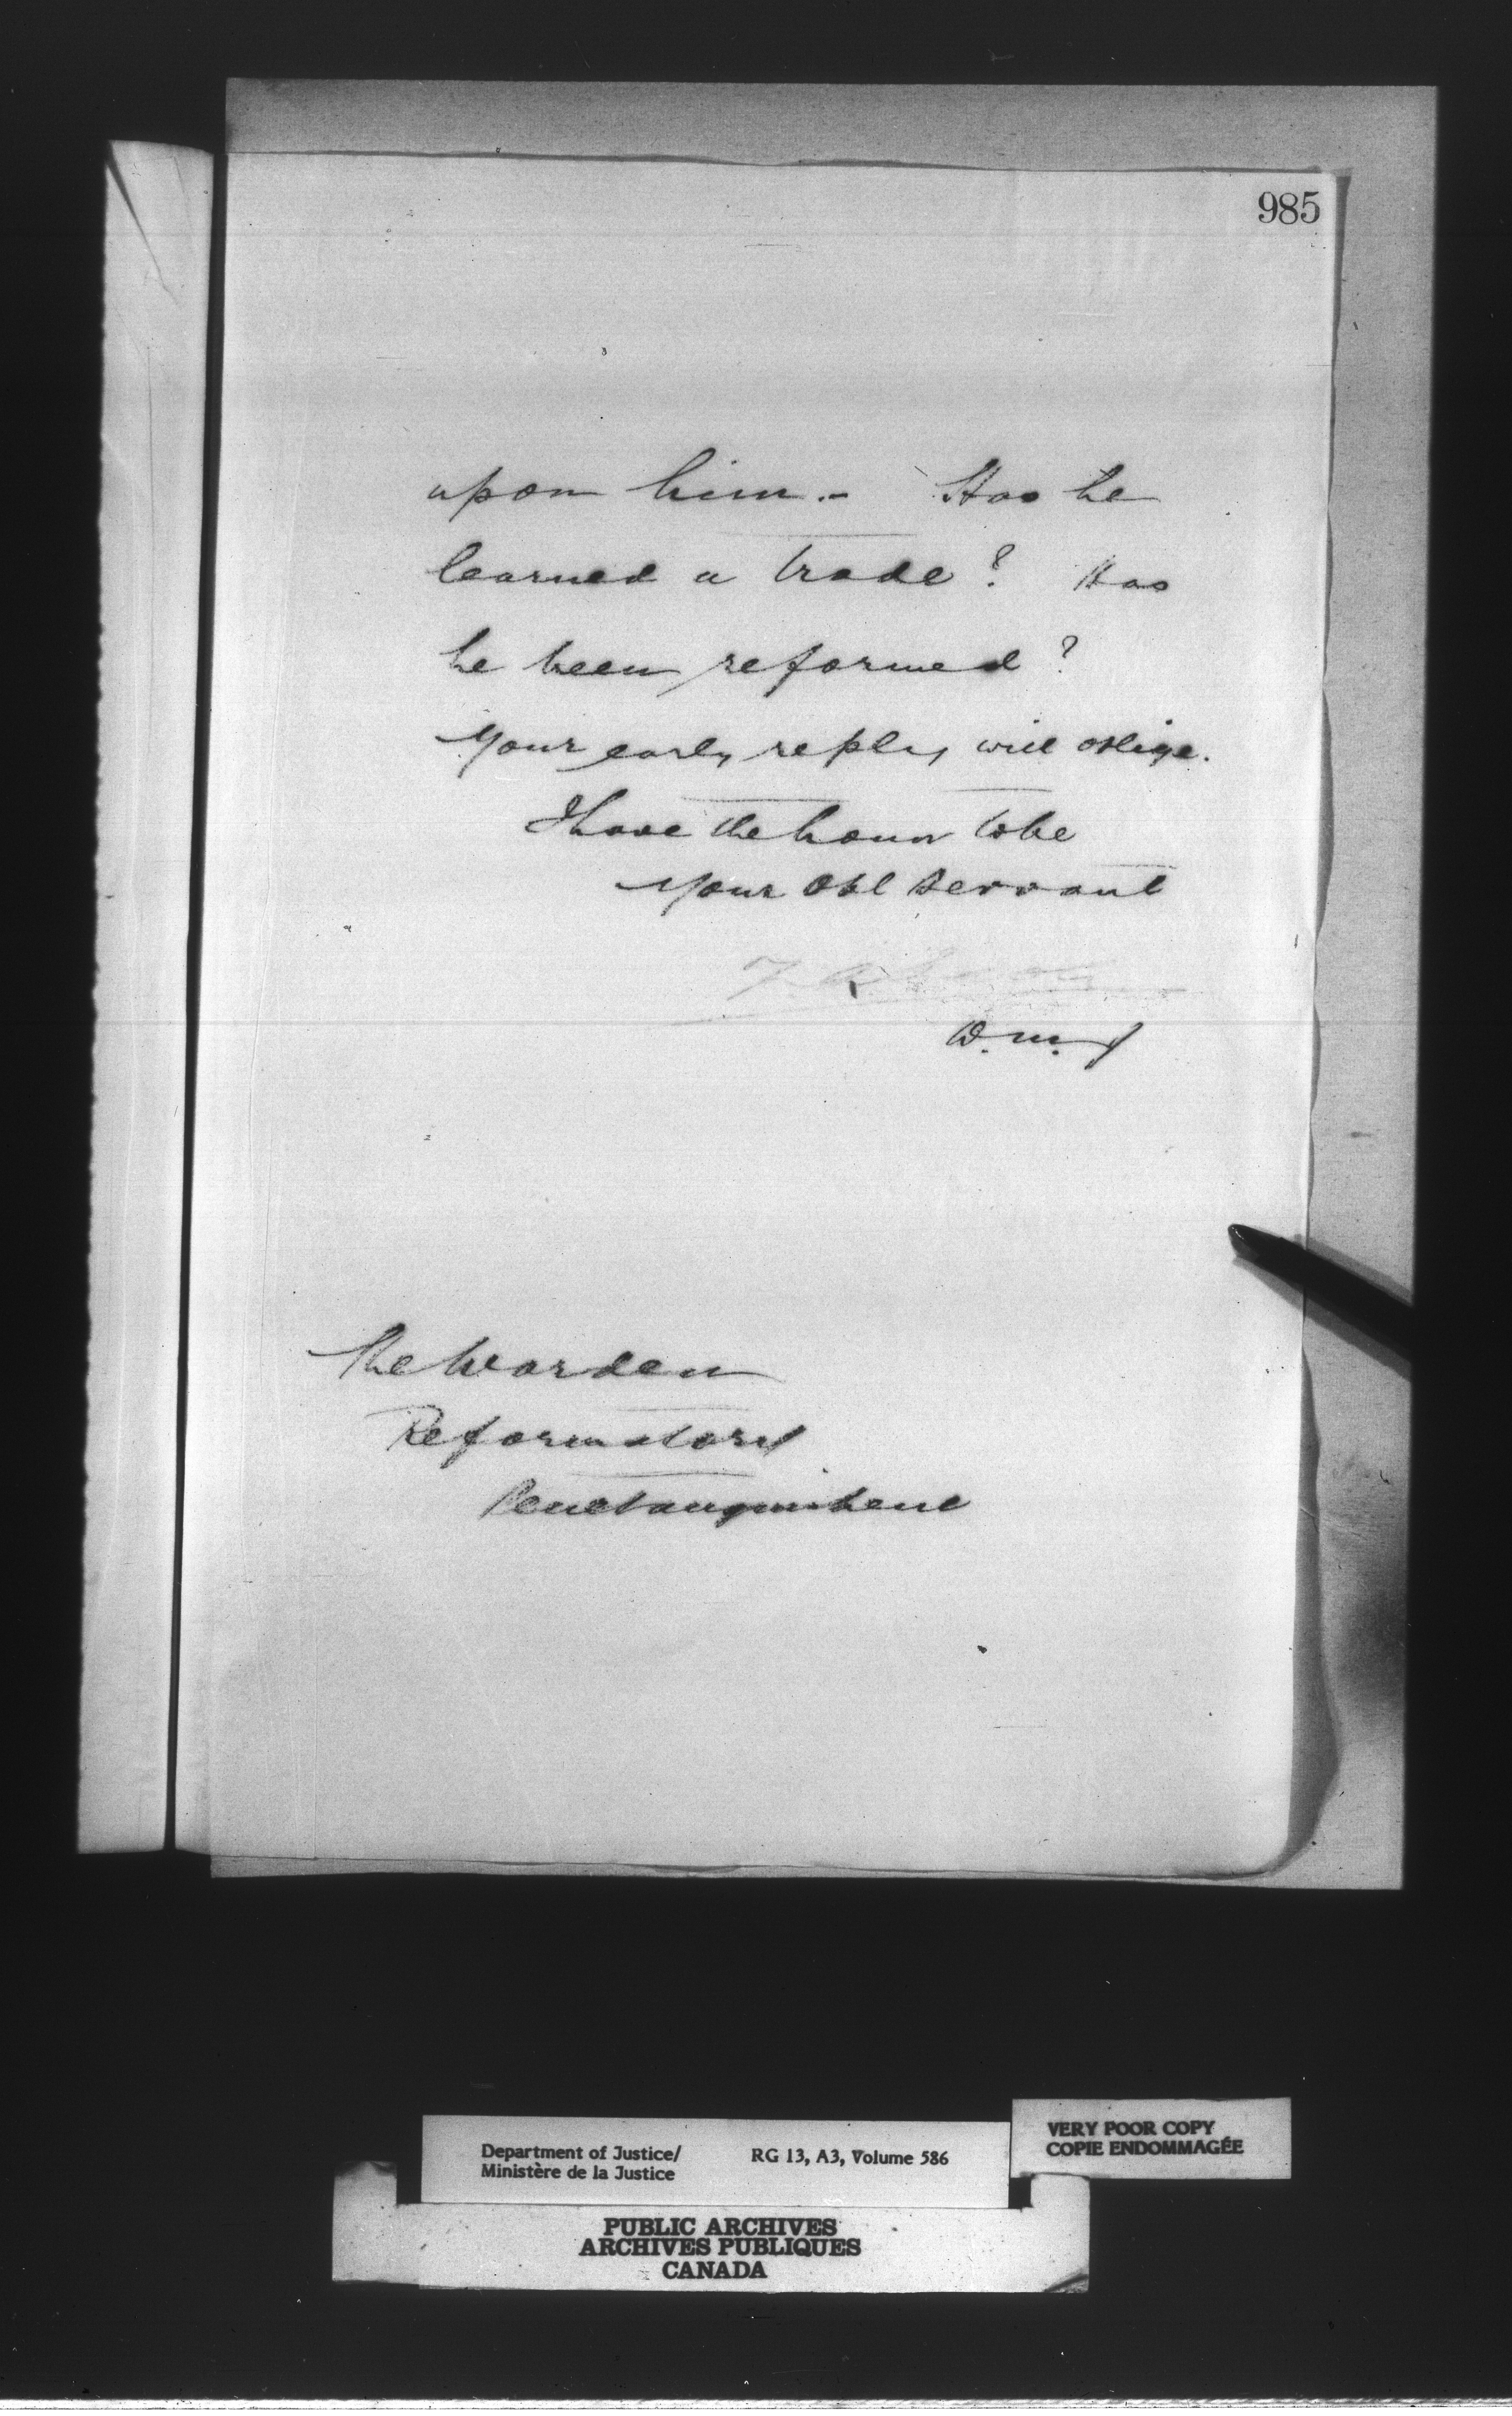 985
upon him.- Has he
learned a trade? Has
he been reformed?
Your early reply will oblige.
I have the honor to be
Your Obt Servant
D.M.J
The Warden
Reformatory
Penetanguishene
Department of Justice/
Ministère de la Justice
RG 13, A3, Volume 586
VERY POOR COPY
COPIE ENDOMMAGÉE
PUBLIC ARCHIVES
ARCHIVES PUBLIQUES
CANADA